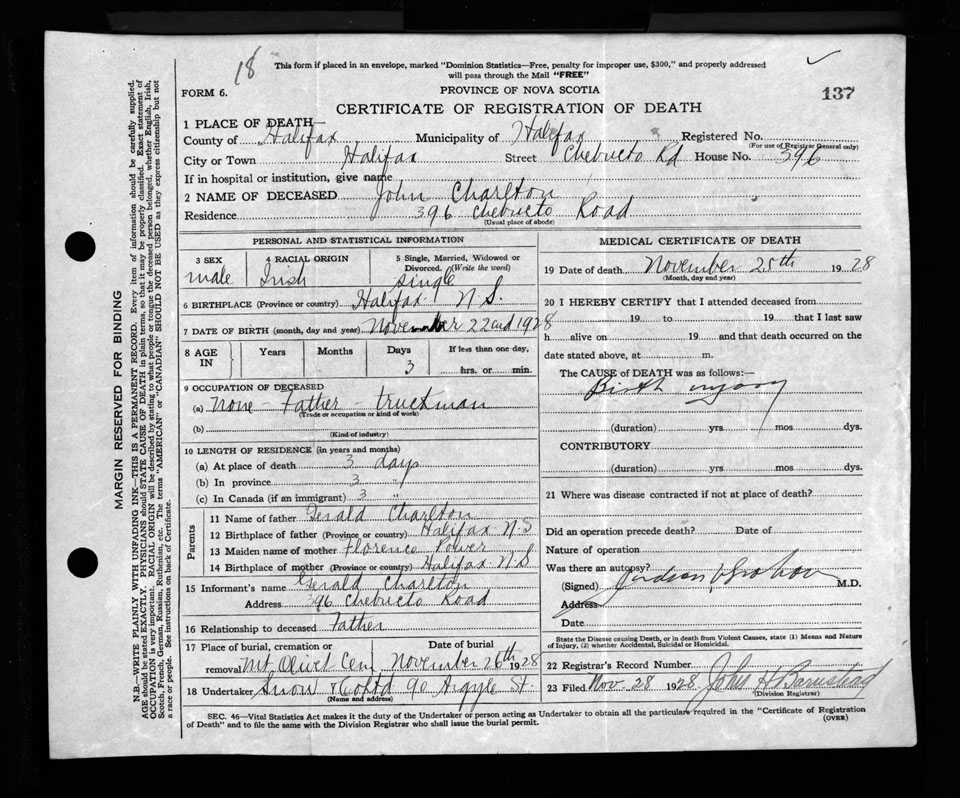 18
This form if placed in an envelope, marked "Dominion Statistics—Free, penalty for improper use, $300," and properly addressed
will pass through the Mail "FREE"
FORM 6.
PROVINCE OF NOVA SCOTIA
137
CERTIFICATE OF REGISTRATION OF DEATH
1 PLACE OF DEATH—
County of Halifax Municipality of Halifax Registered No.
(For use of Registrar General only)
City or Town Halifax Street Chebucto Rd House No. 396
If in hospital or institution, give name
2 NAME OF DECEASED John Charlton
Residence 396 Chebucto Road
(Usual place of abode)
PERSONAL AND STATISTICAL INFORMATION
3 SEX 4 RACIAL ORIGIN 5 Single, Married, Widowed or
Divorced. (Write the word)
male Irish Single
6 BIRTHPLACE (Province or country) Halifax N.S.
7 DATE OF BIRTH (month, day and year) November 22nd 1928
8 AGE IN Years Months Days If less than one day,
3 hrs. or min.
9 OCCUPATION OF DECEASED
(a) None - Father - truckman
(Trade or occupation or kind of work)
(b)
(Kind of industry)
10 LENGTH OF RESIDENCE (in years and months)
(a) At place of death 3 days
(b) In province 3 "
(c) In Canada (if an immigrant) 3 "
Parents
11 Name of father Gerald Charlton
12 Birthplace of father (Province or country) Halifax N.S
13 Maiden name of mother Florence Power
14 Birthplace of mother (Province or country) Halifax N.S
15 Informant's name Gerald Charlton
Address 396 Chebucto Road
16 Relationship to deceased Father
17 Place of burial, cremation or Date of burial
removal Mt. Olivet Cem November 26th 1928
18 Undertaker Snow & Co Ltd 90 Argyle St.
(Name and address)
MEDICAL CERTIFICATE OF DEATH
19 Date of death November 25th 1928
(Month, day and year)
20 I HEREBY CERTIFY that I attended deceased from
19 to 19 that I last saw
h alive on 19 and that death occurred on the
date stated above, at m.
The CAUSE of DEATH was as follows:—
Birth injury
(duration) yrs. mos. dys.
CONTRIBUTORY
(duration) yrs. mos. dys.
21 Where was disease contracted if not at place of death?
Did an operation precede death? Date of
Nature of operation
Was there an autopsy?
(Signed) M.D.
Address
Date
State the Disease causing Death, or in death from Violent Causes, state (1) Means and Nature
of Injury, (2) whether Accidental, Suicidal or Homicidal.
22 Registrar's Record Number
23 Filed Nov. 28 1928 John H Barnstead
(Division Registrar)
SEC. 46—Vital Statistics Act makes it the duty of the Undertaker or person acting as Undertaker to obtain all the particulars required in the "Certificate of Registration
of Death" and to file the same with the Division Registrar who shall issue the burial permit.
(OVER)
MARGIN RESERVED FOR BINDING
N.B.—WRITE PLAINLY WITH UNFADING INK—THIS IS A PERMANENT RECORD. Every item of information should be carefully supplied.
AGE should be stated EXACTLY. PHYSICIANS should STATE CAUSE OF DEATH in plain terms, so that it may be properly classified. Exact statement of
OCCUPATION is very important. RACIAL ORIGIN will be described by stating to what people or tongue the deceased person belonged, whether English, Irish,
Scotch, French, German, Russian, Ruthenian, etc. The terms "AMERICAN" or "CANADIAN" SHOULD NOT BE USED as they express citizenship but not
a race or people. See instructions on back of Certificate.